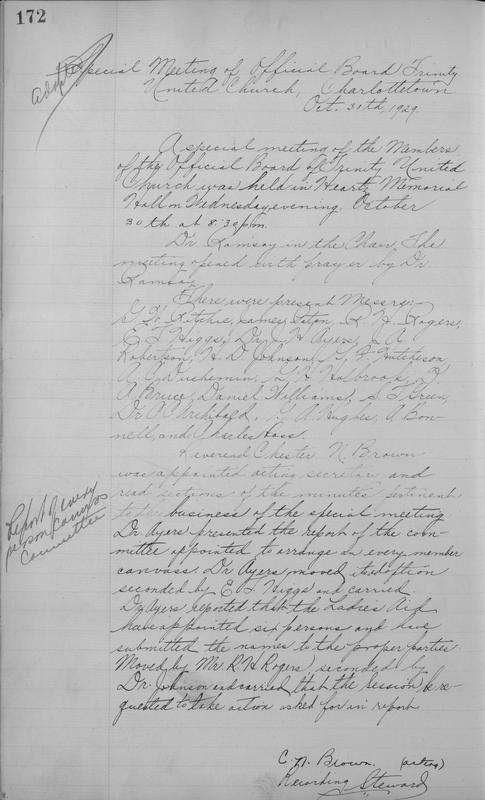 172
Special Meeting of Official Board Trinity
United Church, Charlottetown
Oct. 30th, 1929.
A special meeting of the Members
of the Official Board of Trinity United
Church was held in Heartz Memorial
Hall on Wednesday evening October
30th at 8:30 p.m.
Dr. Ramsay in the Chair, The
meeting opened with prayer by Dr.
Ramsay
There were present Messrs:-
Ritchie, James Paton, R. H. Rogers,
E. T. Higgs, Dr. J. H. Ayers, L. A.
Robertson, H. D. Johnson, G. F. Hutcheson
A. A. Duchemin, G. H. Holbrook,
Bruce, Daniel Williams, S. J. Green,
Dr. Archibald, A. Hughes, A. Bon-
nell, and Charles Hoss.
Reverend Chester N. Brown
was appointed acting secretary and
read sections of the minutes pertinent
to the business of the special meeting
Report of every
person canvass
Committee
Dr Ayers presented the report of the com-
mittee appointed to arrange an every member
canvass. Dr Ayers moved its adoption
seconded by E. T. Higgs and carried
Dr Ayers reported that the Ladies Aid
have appointed six persons and have
submitted the names to the proper parties.
Moved by Mr. R H Rogers, seconded by
Dr. Johnson and carried that the Session be re-
quested to take action asked for in report
C. N. Brown. (acting)
Recording Steward